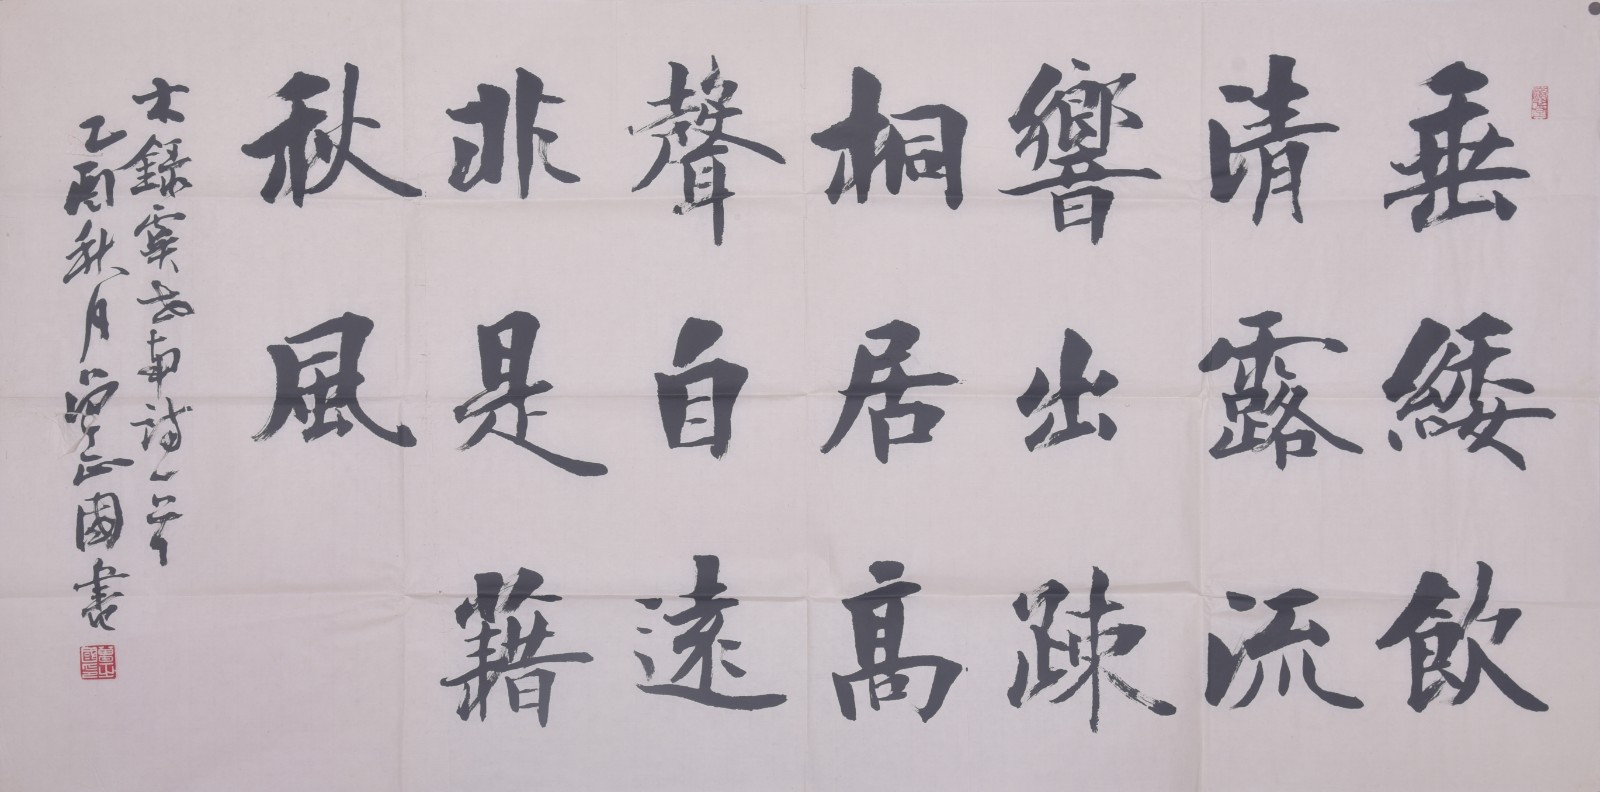 垂緌飲
清露流
響出疎
桐居高
聲自遠
非是藉
秋風
士錄虞世南詩一首
乙酉秋月曾正國書